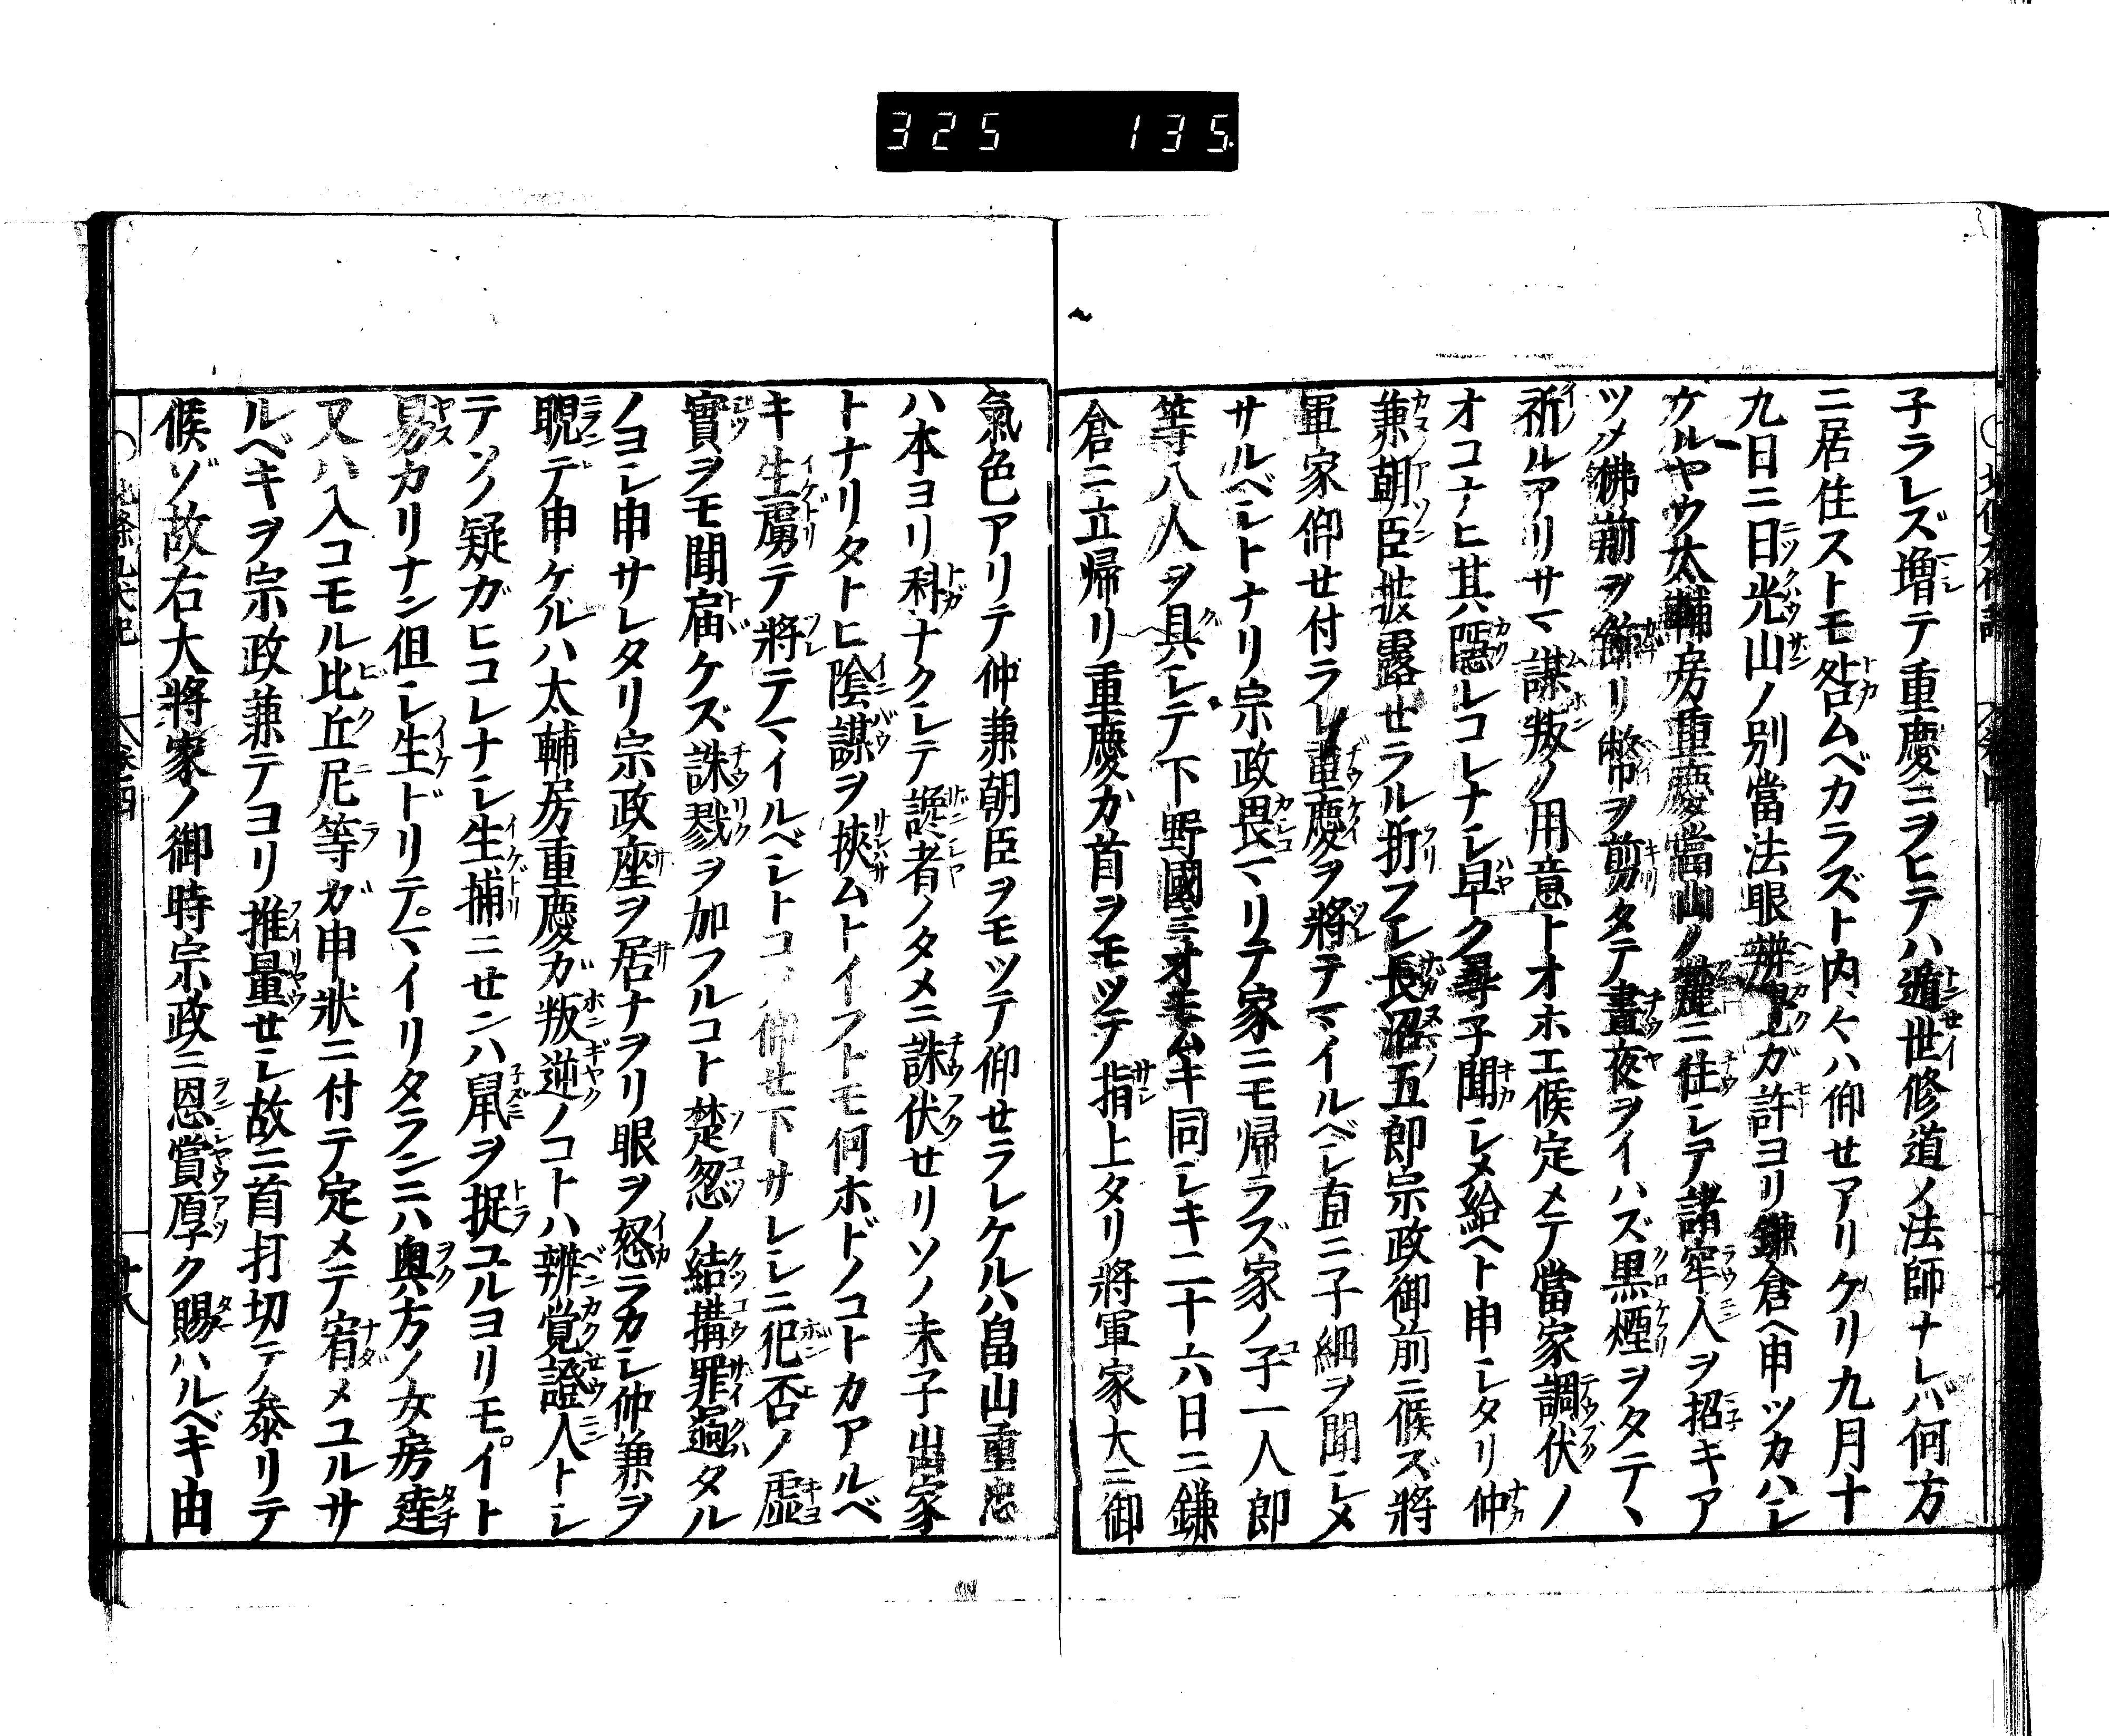 325 135.
子ラレズ増テ重慶ニヲヒテハ遁世修道ノ法師ナレバ何方
ニ居住ストモ咎ムベカラズト内々ハ仰セアリケリ九月十
九日ニ日光山ノ別當法眼辨覚ガ許ヨリ鎌倉ヘ申ツカハレ
ケルヤウ太輔房重慶當山ノ麓ニ住シテ諸牢人ヲ招キア
ツメ佛前ヲ飾リ幣ヲ剪タテ晝夜ヲイハズ黒煙ヲタテヽ
祈ルアリサマ謀叛ノ用意トオホエ候定メテ當家調伏ノ
オコナヒ其隠レコレナシ早ク尋子聞シメ給ヘト申シタリ仲
兼朝臣披露セラル折フシ長沼五郎宗政御前ニ候ズ將
軍家仰セ付ラレ重慶ヲ將テマイルベシ直ニ子細ヲ聞シメ
サルベシトナリ宗政畏マリテ家ニモ帰ラズ家ノ子一人郎
等八人ヲ具シテ下野國ニオモムキ同シキ二十六日ニ鎌
倉ニ立帰リ重慶カ首ヲモツテ指上タリ將軍家大ニ御
氣色アリテ仲兼朝臣ヲモツテ仰セラレケルハ畠山重忠
ハ本ヨリ科ナクシテ讒者ノタメニ誅伏セリソノ末子出家
トナリタトヒ陰謀ヲ挾ムトイフトモ何ホドノコトカアルベ
キ生虜テ將テマイルベシトコソ仰セ下サレシニ犯否ノ虚
實ヲモ聞届ケズ誅戮ヲ加フルコト楚忽ノ結搆罪過タル
ノヨシ申サレタリ宗政座ヲ居ナヲリ眼ヲ怒ラカシ仲兼ヲ
睨デ申ケルハ太輔房重慶ガ叛逆ノコトハ辨覚證人トシ
テソノ疑ガヒコレナシ生捕ニセンハ鼠ヲ捉ユルヨリモイト
易カリナン但シ生ドリテマイリタランニハ奥方ノ女房達
又ハ入コモル比丘尼等ガ申狀ニ付テ定メテ宥メユルサ
ルベキヲ宗政兼テヨリ推量セシ故ニ首打切テ参リテ
候ゾ故右大將家ノ御時宗政ニ恩賞厚ク賜ハルベキ由